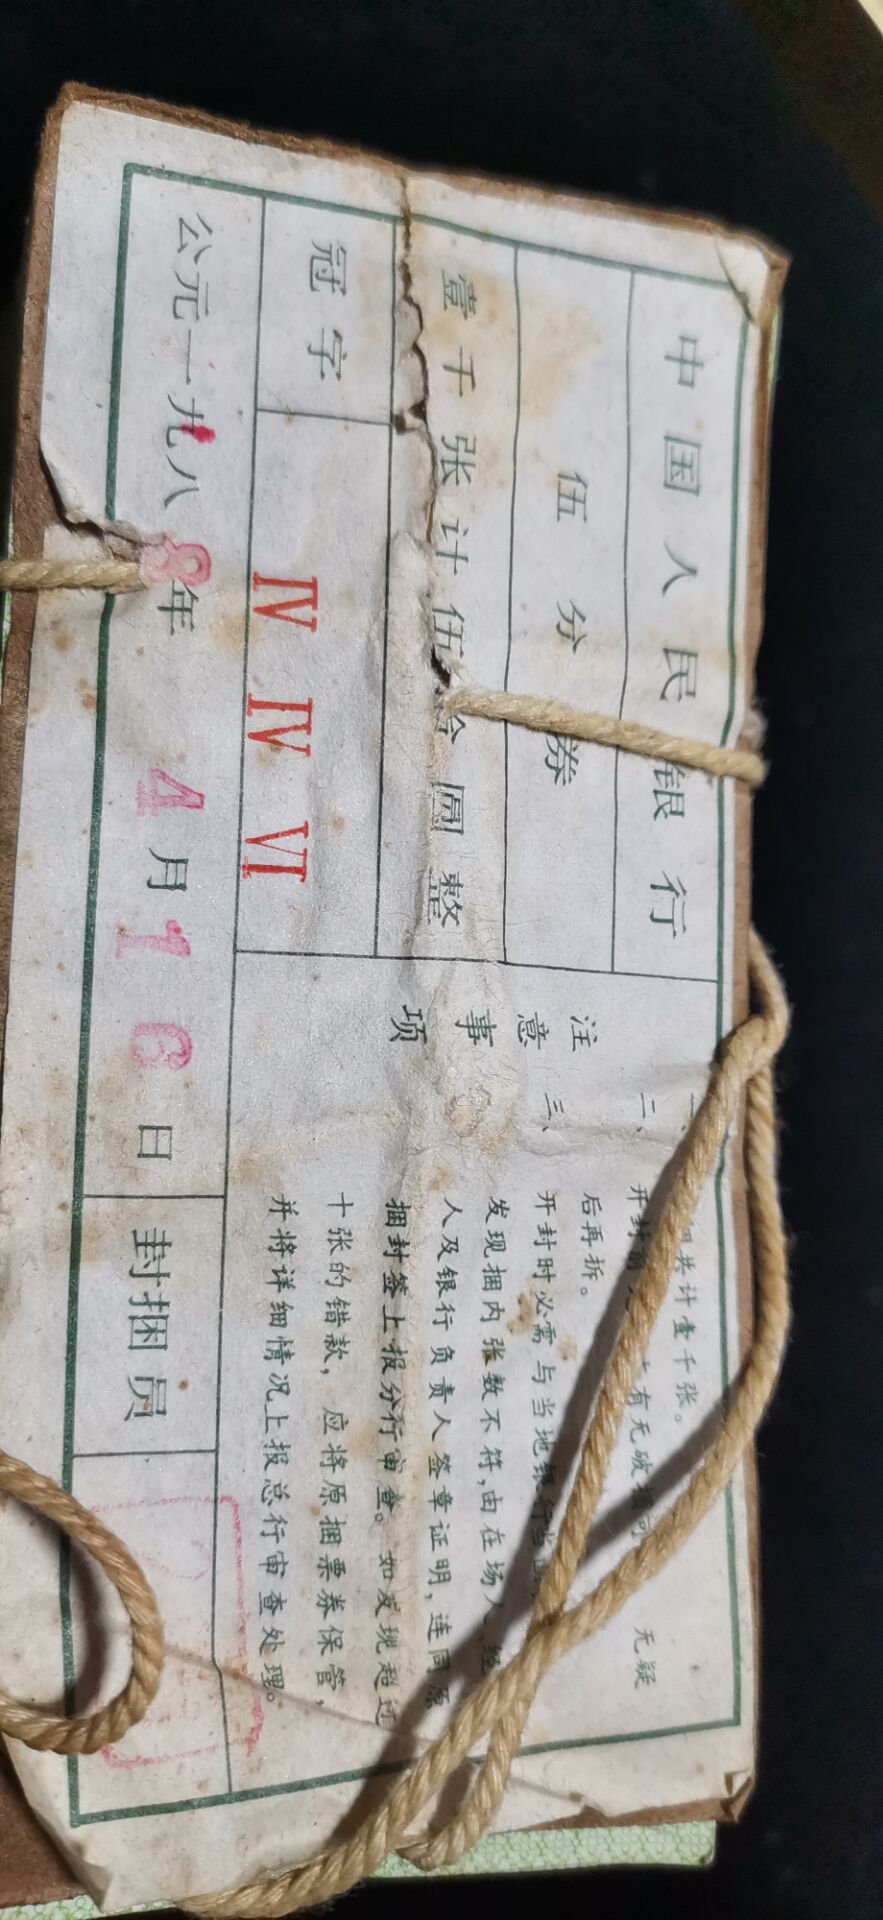 中国人民银行
伍分券
壹千张计伍拾圆整
冠字 IV IV VI
公元一九八8年4月16日
封捆员
注意事项
一、
捆共计壹千张。
二、
开封前
有无破损
无疑
后再拆。
三、
开封时必需与当地银行当面
发现捆内张数不符,由在场人、经
人及银行负责人签章证明,连同原
捆封签上报分行审查。如发现超过
十张的错款,应将原捆票券保管,
并将详细情况上报总行审查处理。